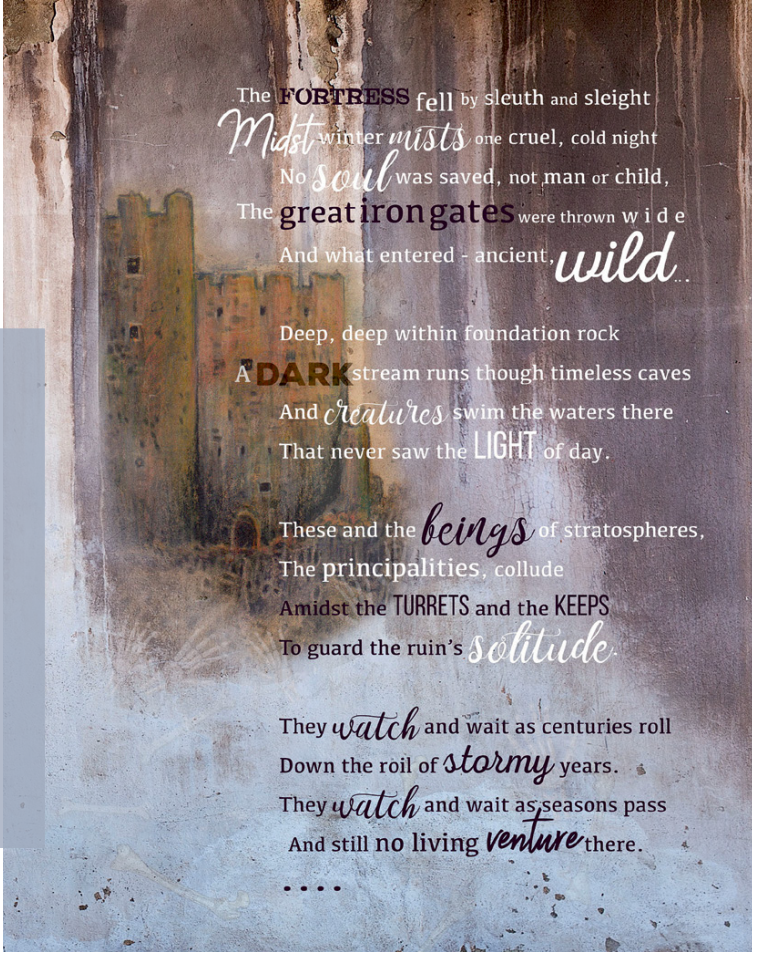 The FORTRESS fell by sleuth and sleight
Midst winter mists one cruel, cold night
No soul was saved, not man or child,
The great iron gates were thrown wide
And what entered - ancient, wild...
Deep, deep within foundation rock
A DARK stream runs though timeless caves
And creatures swim the waters there
That never saw the LIGHT of day.
These and the beings of stratospheres,
The principalities, collude
Amidst the TURRETS and the KEEPS
To guard the ruin's solitude.
They watch and wait as centuries roll
Down the roil of stormy years.
They watch and wait as seasons pass
And still no living venture there.
....